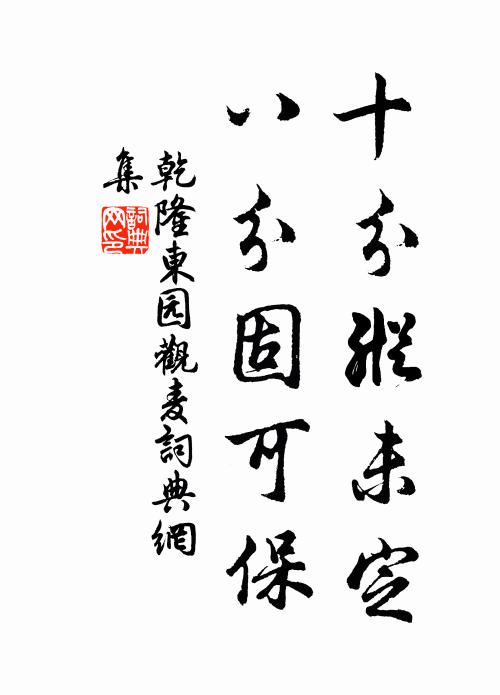 十分縱未定
八分固可保
乾隆東园觀麦詞典網
集
詞典
网印